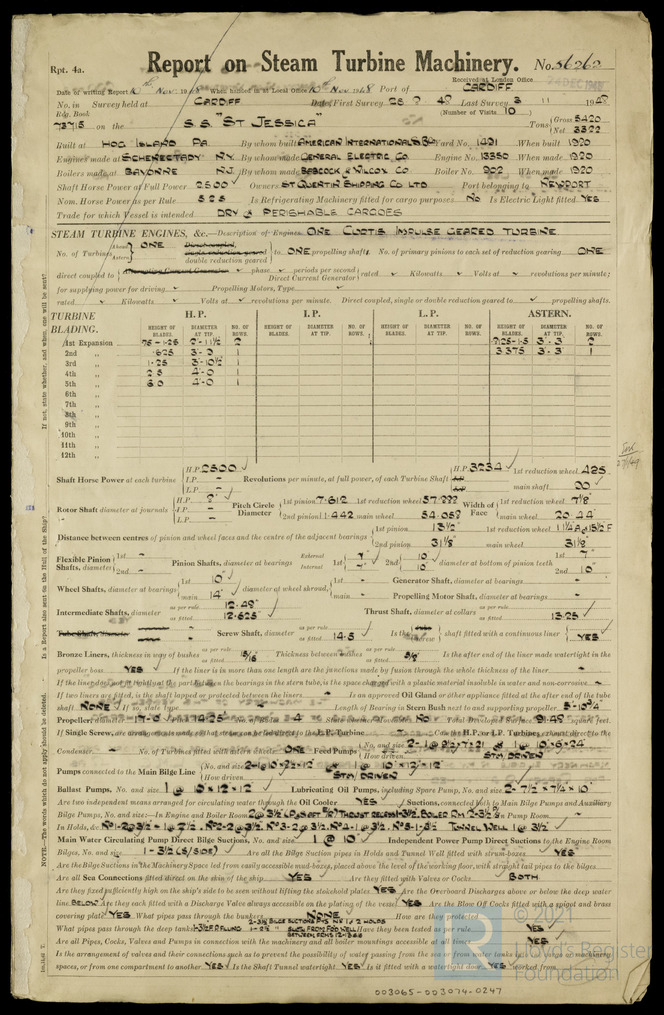 Rpt. 4a.
Report on Steam Turbine Machinery. No. 56262
Received at London Office
24 DEC 1948
Date of writing Report 10th Nov. 1948 When handed in at Local Office 10 Nov. 1948 Port of CARDIFF
No. in Survey held at CARDIFF Date, First Survey 28 9 48 Last Survey 3 11 1948
Reg. Book (Number of Visits 10)
73715 on the S.S. "ST JESSICA" Tons Gross 5420 Net 3322
Built at HOG ISLAND PA. By whom built AMERICAN INTERNATIONAL S.B. Yard No. 1491 When built 1920
Engines made at SCHENECTADY N.Y. By whom made GENERAL ELECTRIC CO Engine No. 13350 When made 1920
Boilers made at BAYONNE N.J. By whom made BABCOCK & WILCOX CO Boiler No. 902 When made 1920
Shaft Horse Power at Full Power 2500 Owners ST QUENTIN SHIPPING CO LTD Port belonging to NEWPORT
Nom. Horse Power as per Rule 525 Is Refrigerating Machinery fitted for cargo purposes NO Is Electric Light fitted YES
Trade for which Vessel is intended DRY & PERISHABLE CARGOES
STEAM TURBINE ENGINES, &c.—Description of Engines ONE CURTIS IMPULSE GEARED TURBINE
No. of Turbines Ahead ONE Astern Direct coupled, double reduction geared to ONE propelling shafts. No. of primary pinions to each set of reduction gearing ONE
direct coupled to Alternating Current Generator phase periods per second Direct Current Generator rated Kilowatts Volts at revolutions per minute;
for supplying power for driving Propelling Motors, Type
rated Kilowatts Volts at revolutions per minute. Direct coupled, single or double reduction geared to propelling shafts.
TURBINE BLADING. H.P. I.P. L.P. ASTERN.
HEIGHT OF BLADES. DIAMETER AT TIP. NO. OF ROWS.
1st Expansion .75-1.25 2'-11½ 2 7.125-1.5 3'-3" 2
2nd .625 3'-0 1 3.375 3'-3" 1
3rd 1.25 3'-10½ 1
4th 2.5 4'-0 1
5th 6.0 4'-0 1
6th
7th
8th
9th
10th
11th
12th
Shaft Horse Power at each turbine H.P. 2500 I.P. - L.P. - Revolutions per minute, at full power, of each Turbine Shaft H.P. 3234 1st reduction wheel 425 main shaft 90
Rotor Shaft diameter at journals H.P. 8" I.P. - L.P. - Pitch Circle Diameter 1st pinion 7.612 1st reduction wheel 57.992 2nd pinion 11.442 main wheel 54.058 Width of Face 1st reduction wheel 7⅞ main wheel 20.44
Distance between centres of pinion and wheel faces and the centre of the adjacent bearings 1st pinion 13½ 2nd pinion 31⅛ 1st reduction wheel 11¼ A & 15½ F main wheel 31⅛
Flexible Pinion Shafts, diameter 1st - 2nd - Pinion Shafts, diameter at bearings External 1st 7" 2nd 10 Internal 1" diameter at bottom of pinion teeth 1st 7" 2nd 10"
Wheel Shafts, diameter at bearings 1st 10" main 14" diameter at wheel shroud, 1st - main - Generator Shaft, diameter at bearings -
Propelling Motor Shaft, diameter at bearings -
Intermediate Shafts, diameter as per rule 12.49" as fitted 12.625 Thrust Shaft, diameter at collars as per rule as fitted 13.25
Tube Shaft, diameter Screw Shaft, diameter as per rule as fitted 14.5 Is the screw shaft fitted with a continuous liner YES
Bronze Liners, thickness in way of bushes as fitted 15/16 Thickness between bushes as fitted 5/8" Is the after end of the liner made watertight in the
propeller boss YES If the liner is in more than one length are the junctions made by fusion through the whole thickness of the liner -
If the liner does not fit tightly at the part between the bearings in the stern tube, is the space charged with a plastic material insoluble in water and non-corrosive -
If two liners are fitted, is the shaft lapped or protected between the liners - Is an approved Oil Gland or other appliance fitted at the after end of the tube
shaft NONE If so, state type Length of Bearing in Stern Bush next to and supporting propeller 5'-10¾"
Propeller, diameter 17'-0 Pitch 14.25 No. of Blades 4 NO Total Developed Surface 91.49 square feet.
If Single Screw, are arrangements made so that steam can be led direct to the L.P. Turbine - Can the H.P. or I.P. Turbine exhaust direct to the
Condenser - No. of Turbines fitted with astern wheels ONE Feed Pumps No. and size 2-1 @ 9½ × 7 × 21 @ 1 @ 10 × 6 × 24 How driven STM DRIVEN
Pumps connected to the Main Bilge Line No. and size 2-1 @ 10 × 9½ × 12" 1 @ 10 × 12 × 12 How driven STM DRIVEN
Ballast Pumps, No. and size 1 @ 10 × 12 × 12 Lubricating Oil Pumps, including Spare Pump, No. and size 2- 7½ × 7¼ × 10"
Are two independent means arranged for circulating water through the Oil Cooler YES Suctions, connected both to Main Bilge Pumps and Auxiliary
Bilge Pumps, No. and size:—In Engine and Boiler Room 2 @ 3½ THRUST RECESS 1-3½ BOILER RM 2-3½ In Pump Room -
In Holds, &c. No 1-2@3½ + 1@2½. No 2-2@3½. No 3-2@3½. No 4-1@3½. No 5-1-3½ TUNNEL WELL 1@3½"
Main Water Circulating Pump Direct Bilge Suctions, No. and size 1 @ 10 Independent Power Pump Direct Suctions to the Engine Room
Bilges, No. and size 1-3½ (S/SIDE) Are all the Bilge Suction pipes in Holds and Tunnel Well fitted with strum-boxes YES
Are the Bilge Suctions in the Machinery Space led from easily accessible mud-boxes, placed above the level of the working floor, with straight tail pipes to the bilges
Are all Sea Connections fitted direct on the skin of the ship YES Are they fitted with Valves or Cocks BOTH
Are they fixed sufficiently high on the ship's side to be seen without lifting the stokehold plates YES Are the Overboard Discharges above or below the deep water
line BELOW Are they each fitted with a Discharge Valve always accessible on the plating of the vessel YES Are the Blow Off Cocks fitted with a spigot and brass
covering plate YES What pipes pass through the bunkers NONE How are they protected
What pipes pass through the deep tanks Have they been tested as per rule YES
Are all Pipes, Cocks, Valves and Pumps in connection with the machinery and all boiler mountings accessible at all times YES
Is the arrangement of valves and their connections such as to prevent the possibility of water passing from the sea or from water tanks into the cargo or machinery
spaces, or from one compartment to another YES Is the Shaft Tunnel watertight YES Is it fitted with a watertight door YES worked from
If not, state whether, and when, one will be sent?
Is a Report also sent on the Hull of the Ship?
NOTE.—The words which do not apply should be deleted.
© 2021
Lloyd's Register
Foundation
003065-003074-0247